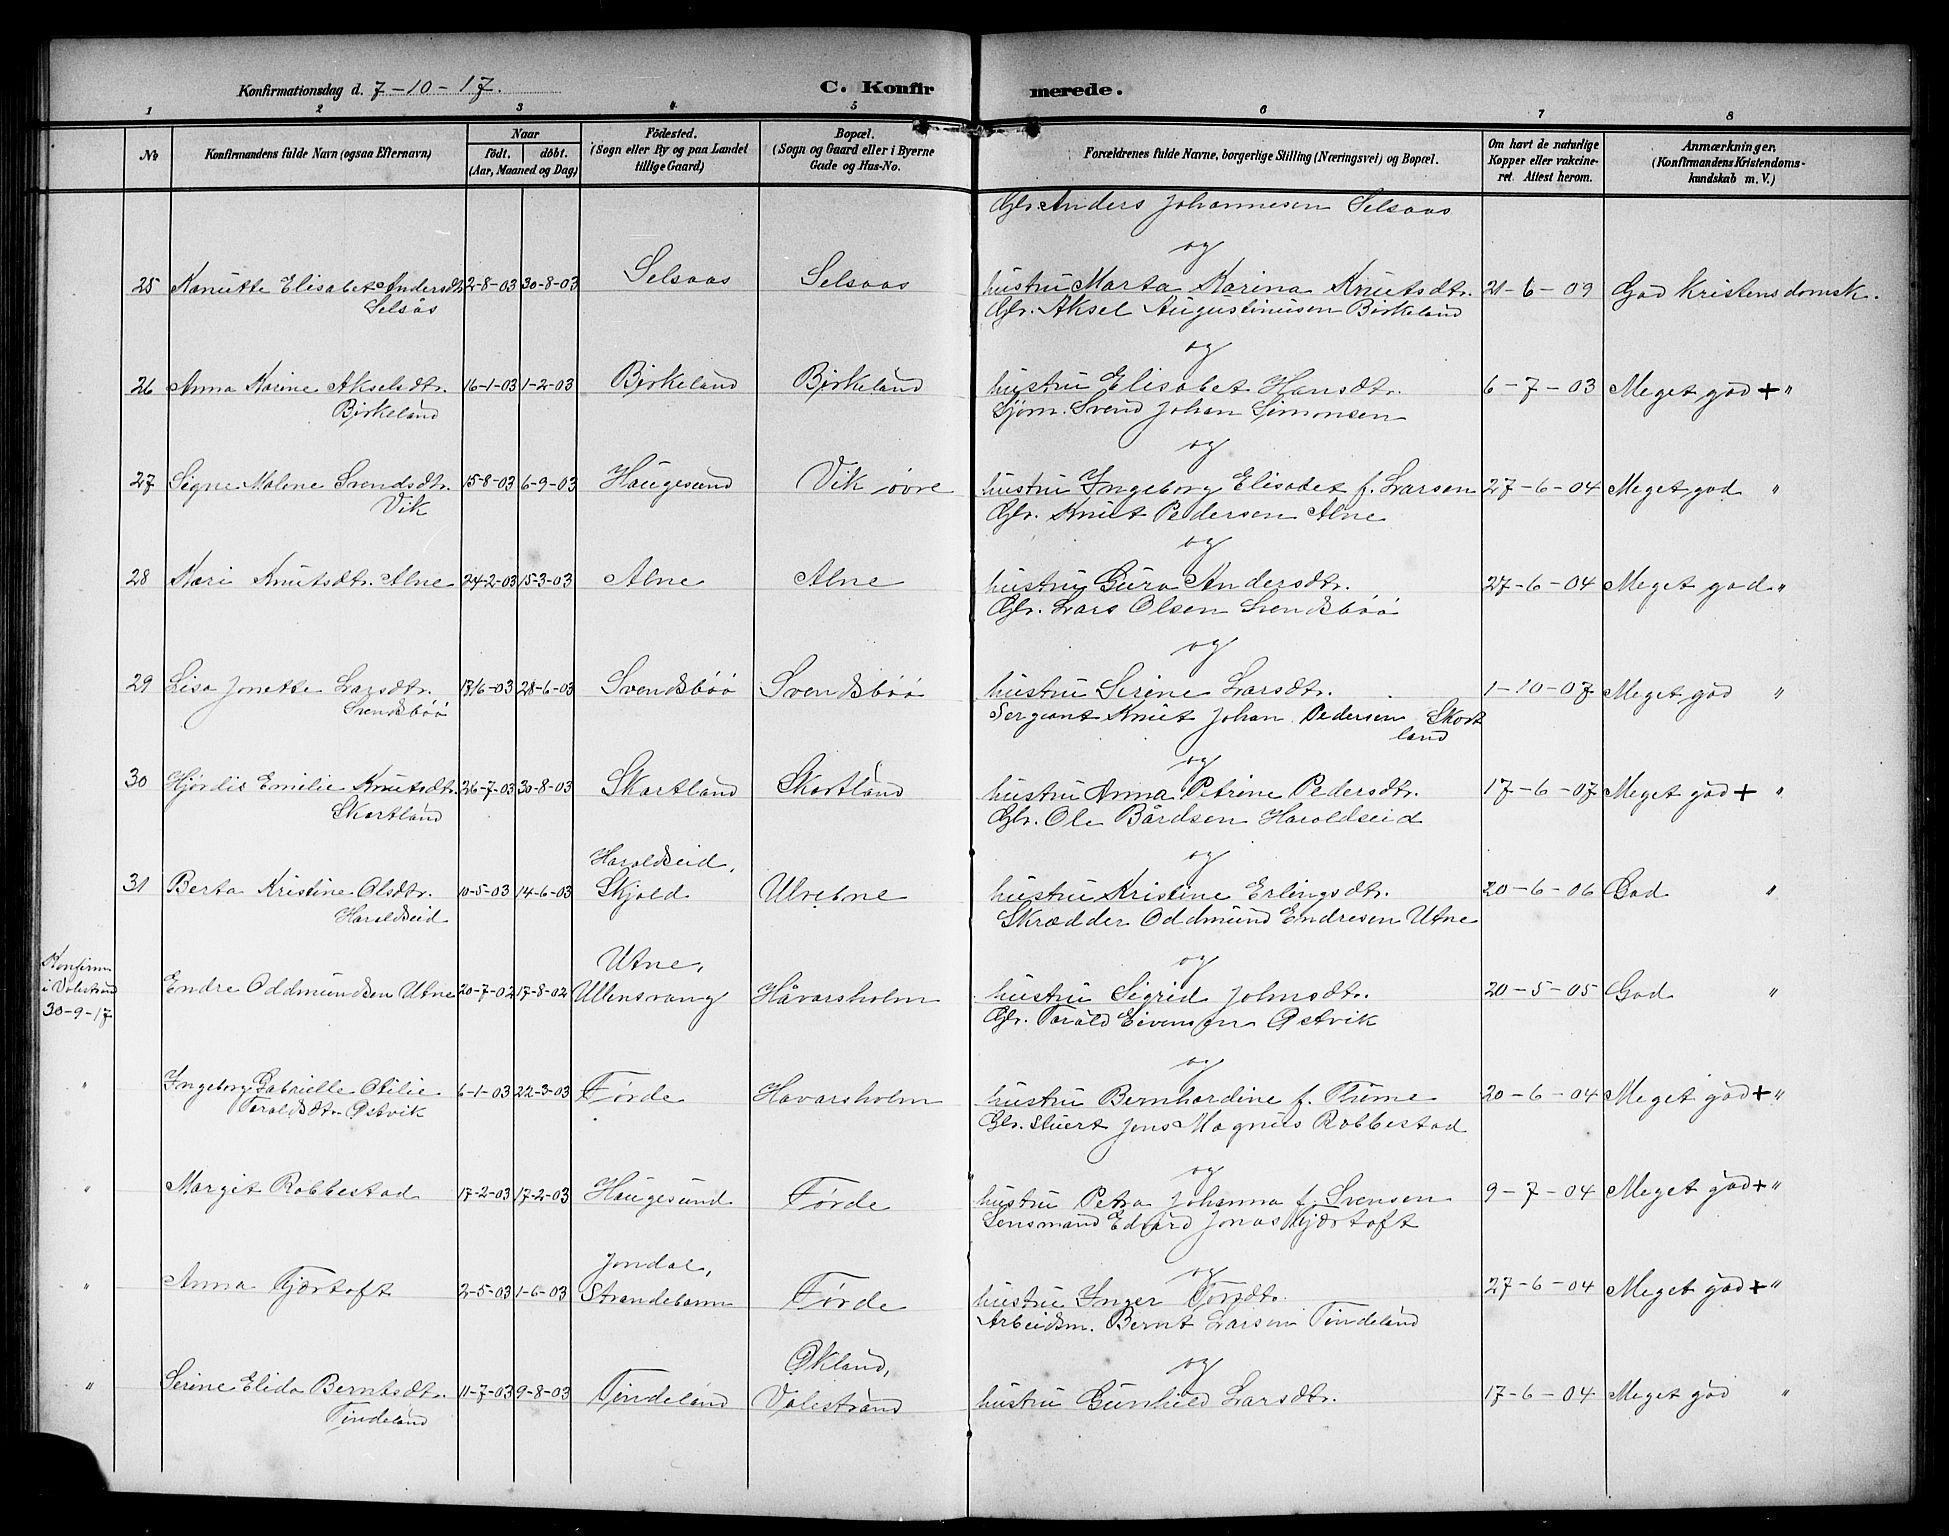 Konfirmationsdag d. 7-10-17. C. Konfirmerede.
1 2 3 4 5 6 7 8
No
Konfirmandens fulde Navn (ogsaa Efternavn)
Naar
födt. döbt.
(Aar, Maaned og Dag)
Födested.
(Sogn eller By og paa Landet
tillige Gaard)
Bopæl.
(Sogn og Gaard eller i Byerne
Gade og Hus-No.
Forældrenes fulde Navne, borgerlige Stilling (Næringsvei) og Bopæl.
Om havt de naturlige
Kopper eller vakcine-
ret. Attest herom.
Anmærkninger.
(Konfirmandens Kristendoms-
kundskab m. V.)
Gbr. Anders Johannesen Selsaas
og
25 Kanutte Elisabet Andersdtr. 2-8-03 30-8-03 Selsaas Selsaas hustru Marta Karina Knutsdtr. 21-6-09 God Kristensdomsk.
Selsås
Gbr. Aksel Augustinusen Birkeland
og
26 Anna Karine Akselsdtr. 16-1-03 1-2-03 Birkeland Birkeland hustru Elisabet Hansdtr. 6-7-03 Meget god + "
Birkeland
Sjøm. Svend Johan Simonsen
og
27 Signe Malene Svendsdtr. 15-8-03 6-9-03 Haugesund Vik øvre hustru Ingeborg Elisabet f. Larsen 27-6-04 Meget god "
Vik
Gbr. Knut Pedersen Alne
og
28 Kari Knutsdtr. Alne 24-2-03 15-3-03 Alne Alne hustru Guro Andersdtr. 27-6-04 Meget god "
Gbr. Lars Olsen Svendsbøø
og
29 Lisa Jonette Larsdtr. 13/6-03 28-6-03 Svendsbøø Svendsbøø hustru Serine Larsdtr. 1-10-07 Meget god "
Svendsbøø
Sergiant Knut Johan Pedersen Skort
land
og
30 Hjørdis Emilie Knutsdtr. 26-7-03 30-8-03 Skortland Skortland hustru Anna Petrine Pedersdtr. 17-6-07 Meget god + "
Skortland
Gbr. Ole Bårdsen Haroldseid
og
Haroldseid,
31 Berta Kristine Olsdtr. 10-5-03 14-6-03 Skjold Ulvetne hustru Kristine Erlingsdtr. 20-6-06 God "
Haroldseid
Skrædder Oddmund Endresen Utne
og
Konfirm.
i Valestrand
30-9-17
Utne,
Endre Oddmundsen Utne 20-7-02 17-8-02 Ullensvang Håvarsholm hustru Sigrid Johnsdtr. 20-5-05 God "
Gbr. Torald Eivensen Østvik
og
" Ingeborg Gabrielle Otilie 6-1-03 22-3-03 Førde Håvarsholm hustru Bernhardine f. Thime 20-6-04 Meget god + "
Taraldsdtr. Østvik
Gbr. Stuert Jens Magnus Robbestad
og
" Margit Robbestad 17-2-03 17-2-03 Haugesund Førde hustru Petra Johanna f. Svensen 9-7-04 Meget god + "
Lensmand Edvard Jonas Fjærtoft
og
Jondal,
" Anna Fjærtoft 2-5-03 1-6-03 Strandebarm Førde hustru Inger 27-6-04 Meget god + "
Arbeidsm. Bernt Larsen Tindeland
og
Økland,
" Serine Elida Berntsdtr. 11-7-03 9-8-03 Tindeland Valestrand hustru Gunhild Larsdtr. 17-6-04 Meget god "
Tindeland